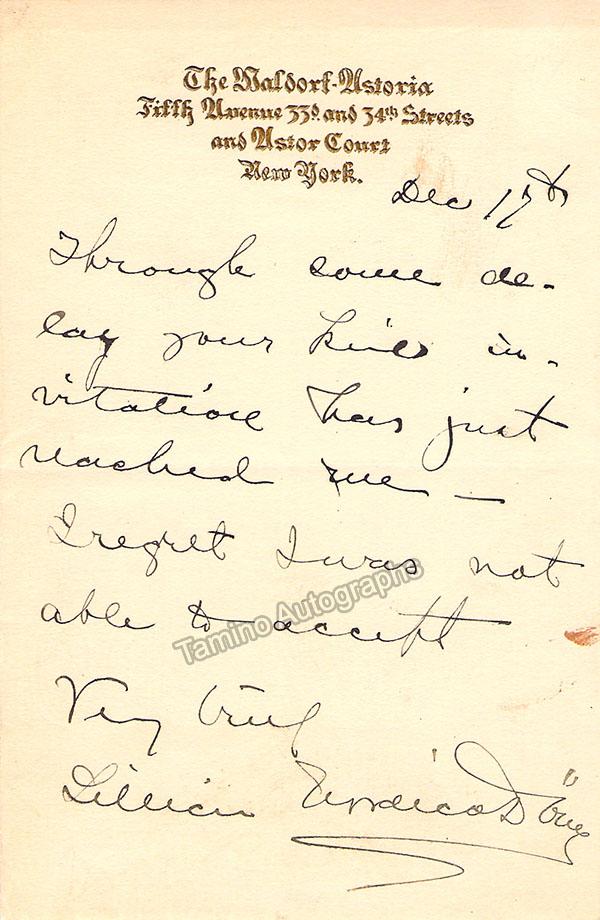 The Waldorf-Astoria
Fifth Avenue 33d and 34th Streets
and Astor Court
New York.
Dec 17th
Through some de-
lay your kind in-
vitation has just
reached me —
I regret I was not
able to accept
Very truly
Lillian Nordica Döme
Tamino Autographs